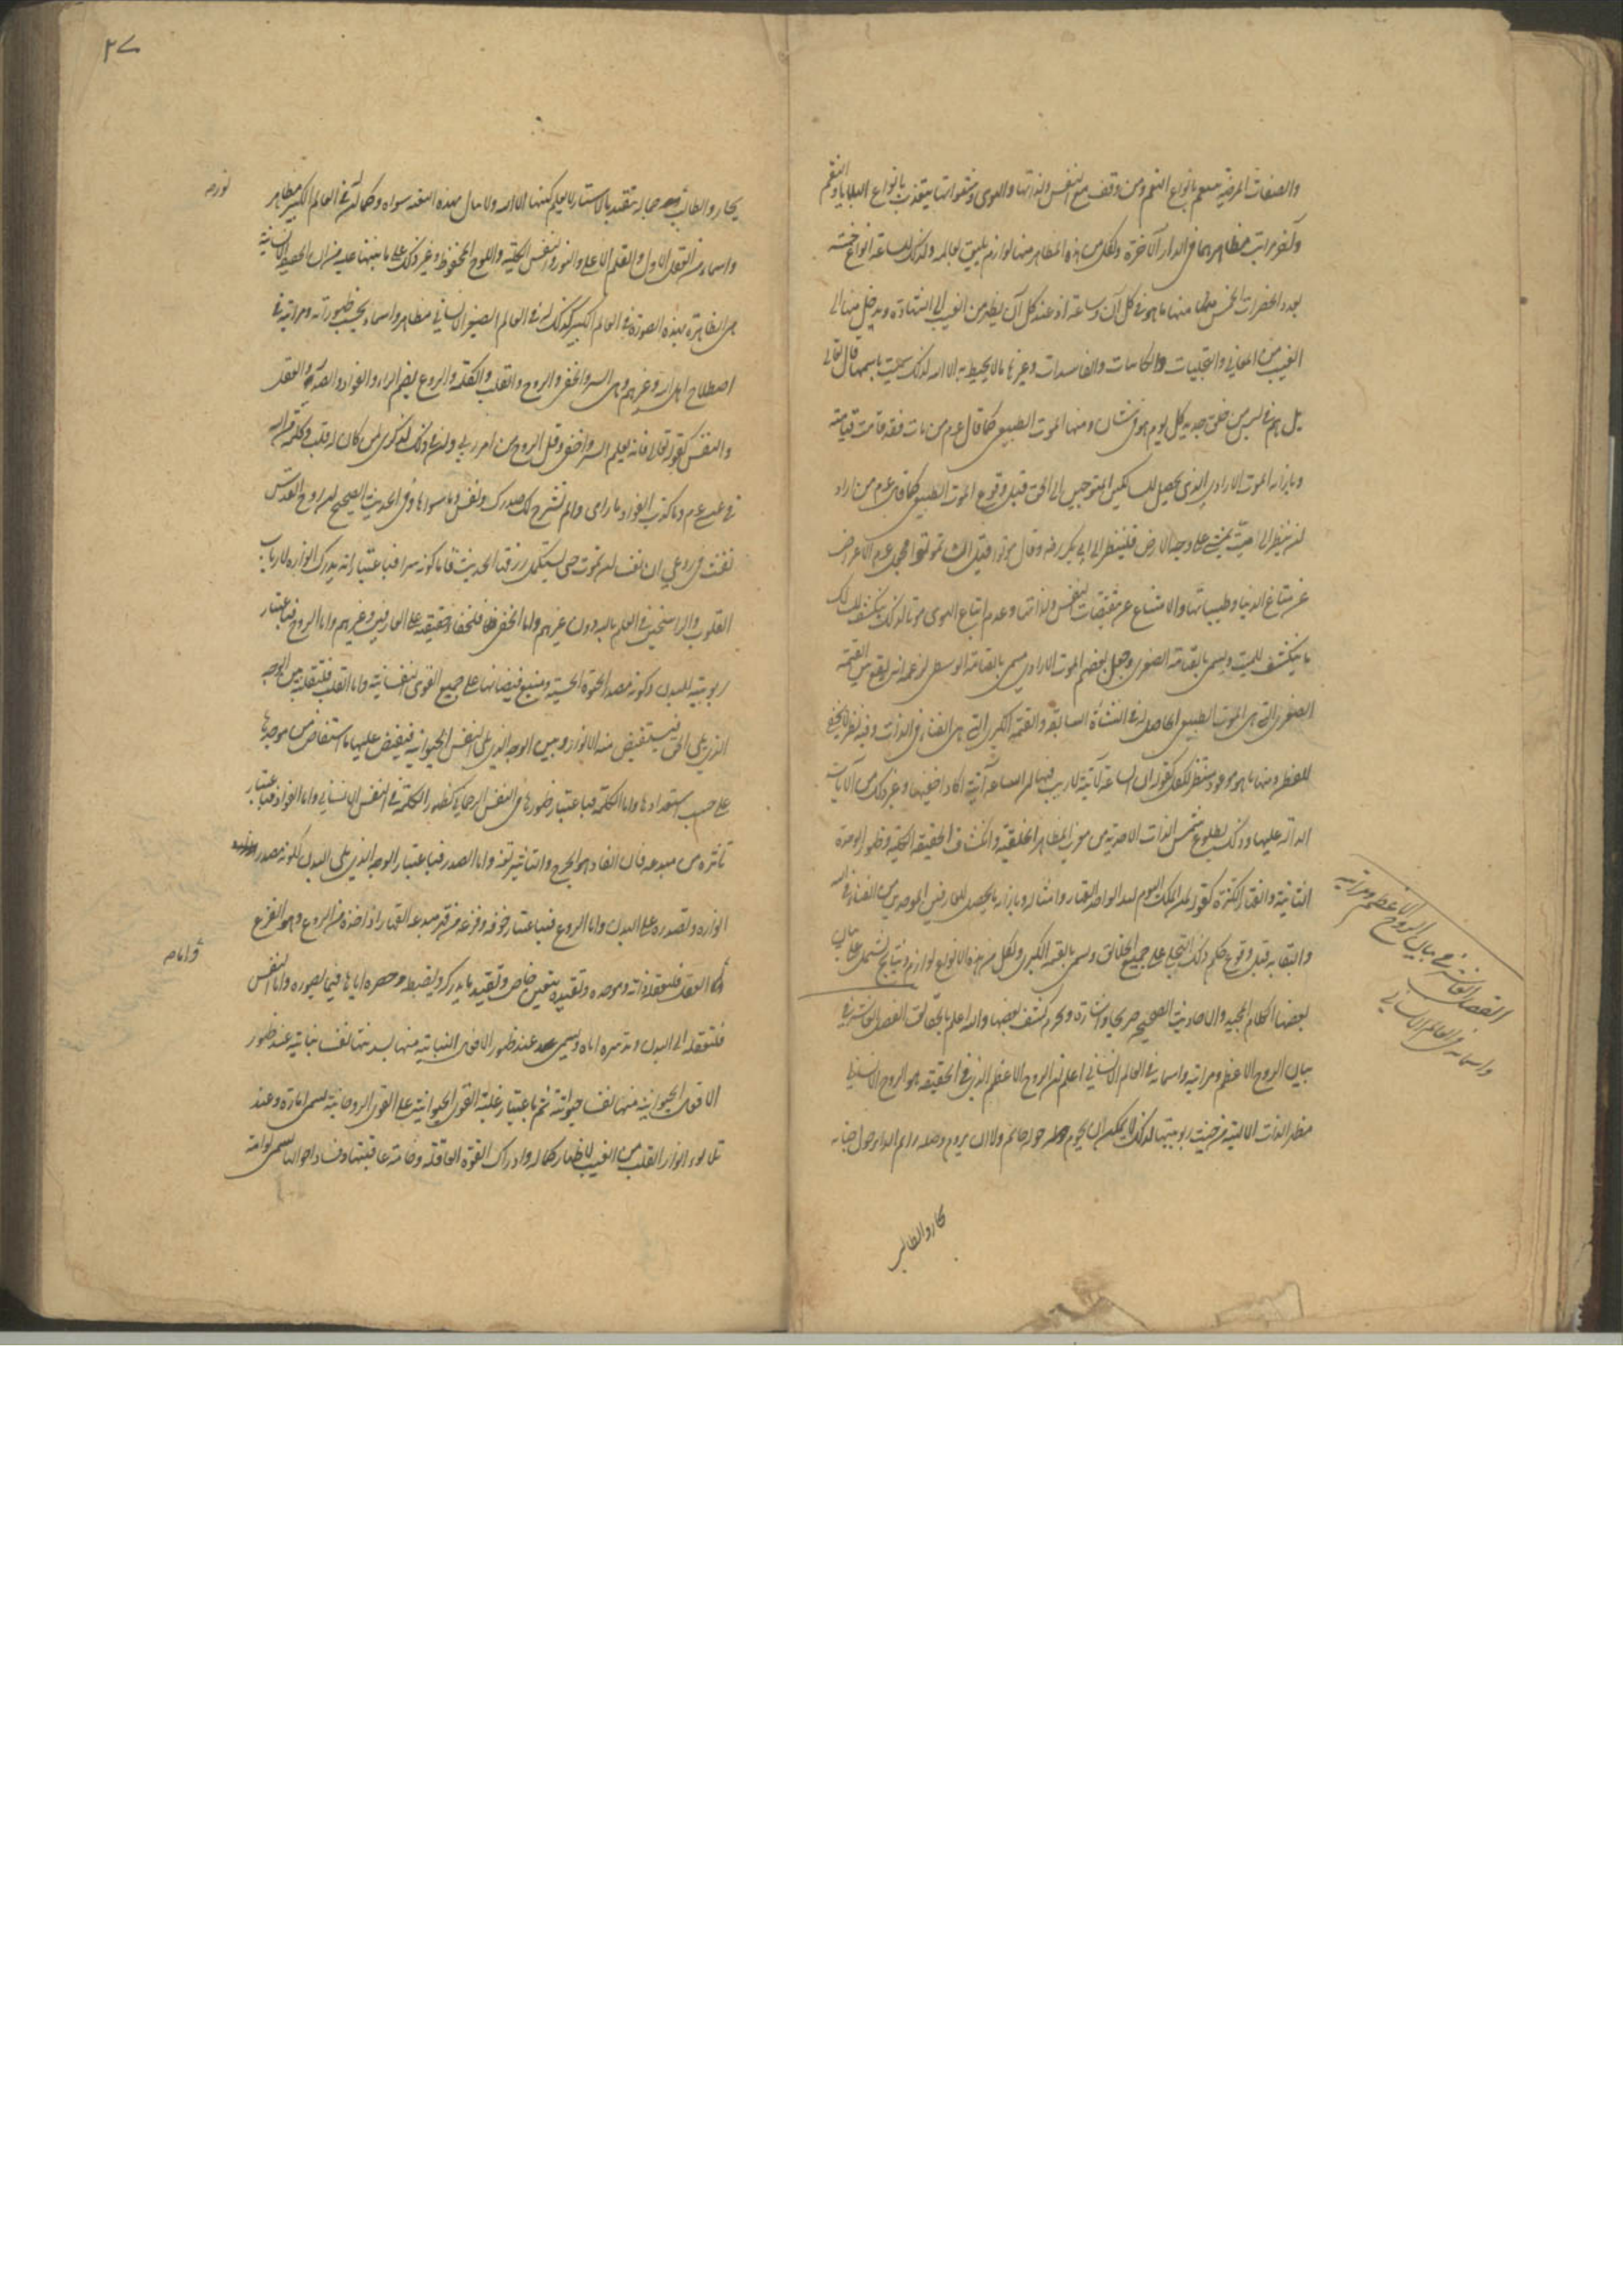 والصفات المرضية منعم بانواع النعم ومن وقف مع النفس ولذاتها والهوى وشهواتها يتعذب بانواع البلايا والنقم
وآخر مراتب مظاهرهما في الدار الآخرة ولكل من هذه المظاهر منها لوازم يليق بعالمه وكذلك للساعة انواع خمسة
بعدد الحضرات الخمس منها ما هو في كل آن وساعة اذ عند كل آن يظهر من الغيب الى الشهادة ويدخل منها الى
الغيب من المعاني والتجليات والكاينات والفاسدات وغيرها ما لا يحيط به الا الله لذلك سميت باسمها قال تعالى
بل هم في لبس من خلق جديد كل يوم هو في شان ومنها الموت الطبيعي كما قال عم من مات فقد قامت قيامته
وبازائه الموت الارادي الذي يحصل للسالكين المتوجهين الى الحق قبل وقوع الموت الطبيعي كما قال عم من اراد
ان ينظر الى ميت يمشي على وجه الارض فلينظر الى ابي بكر وقال موتوا قبل ان تموتوا فجعل عم الاعراض
عن متاع الدنيا وطيباتها والامتناع عن مقتضيات النفس ولذاتها وعدم اتباع الهوى موتا لذلك ينكشف للسالك
ما ينكشف للميت ويسمى بالقيامة الصغرى وجعل بعضهم الموت الارادي مسمى بالقيامة الوسطى لزعمه انه يقع بين القيمة
الصغرى التي هي الموت الطبيعي الحاصل له في النشأة السابقة والقيمة الكبرى التي هي الفناء في الذات وفيه نظر لا يخفى
للفطن ومنها ما هو موعود منتظر للكل كقوله ان الساعة لآتية لا ريب فيها ان الساعة آتية اكاد اخفيها وغير ذلك من الآيات
الدالة عليها وذلك بطلوع شمس الذات الاحدية من مغرب المظاهر الخلقية وانكشاف الحقيقة الكلية وظهور الوحدة
التامة وانقهار الكثرة كقوله لمن الملك اليوم لله الواحد القهار وامثاله وبازائه ما يحصل للعارفين الموحدين من الفناء في الله
والبقاء به قبل وقوع حكم ذلك التجلي على جميع الخلائق ويسمى بالقيمة الكبرى ولكل من هذه الانواع لوازم ونتائج يشتمل على بيان
بعضها الكلام المجيد والاحاديث الصحيحة صريحا واشارة ويحرم كشف بعضها والله اعلم بالحقائق الفصل العاشر في
بيان الروح الاعظم ومراتبه واسمائه في العالم الانساني اعلم ان الروح الاعظم الذي في الحقيقة هو الروح الانساني
مظهر الذات الالهية من حيث ربوبيتها لذلك لا يمكن ان يحوم حوله حائم ولا ان يروم وصله رائم الداير حول جنابه
يحار والطالب
الفصل العاشر في بيان الروح الاعظم ومراتبه
واسمائه في العالم الانساني
٢٧
يحار والطالب جماله يتقيد بالاستار لا يعلم كنهه الا الله ولا ينال بهذه البغية سواه وكما ان له في العالم الكبير مظاهر
واسماء من العقل الاول والقلم الاعلى والنور والنفس الكلية واللوح المحفوظ وغير ذلك على ما نبهنا عليه من ان الحقيقة الانسانية
هي الظاهرة بهذه الصورة في العالم الكبير كذلك له في العالم الصغير الانساني مظاهر واسماء بحسب ظهوراته ومراتبه في
اصطلاح اهل الله وغيرهم وهي السر والخفي والروح والقلب والكلمة والروع بضم الراء والفؤاد والصدر والعقل
والنفس كقوله تعالى فانه يعلم السر واخفى وقل الروح من امر ربي وان في ذلك لذكرى لمن كان له قلب وكلمة من الله
في عيسى عم وما كذب الفؤاد ما رأى والم نشرح لك صدرك ونفس وما سواها وفي الحديث الصحيح ان روح القدس
نفث في روعي ان نفسا لن تموت حتى تستكمل رزقها الحديث فاما كونه سرا فباعتبار انه لا يدرك انواره الا ارباب
القلوب والراسخين في العلم بالله دون غيرهم واما الخفي فلخفاء حقيقته على العارفين وغيرهم واما الروح فباعتبار
ربوبيته للبدن وكونه مصدر الحيوة الحسية ومنبع فيضانها على جميع القوى النفسانية واما القلب فلتقلبه بين الوجه
الذي يلي الحق فيستفيض منه الانوار وبين الوجه الذي يلي النفس الحيوانية فيفيض عليها ما استفاض من موجدها
على حسب استعدادها واما الكلمة فباعتبار ظهورها في النفس الرحماني كظهور الكلمة في النفس الانساني واما الفؤاد فباعتبار
تاثره من مبدعه فان الفأد هو الجرح والتاثير لغة واما الصدر فباعتبار الوجه الذي يلي البدن لكونه مصدر
انواره وتصدره على البدن واما الروع فباعتبار خوفه وفزعه من قهر مبدعه القهار اذ اخذه من الروع وهو الفزع
واما العقل فلتعقله ذاته وموجده وتقيده بتعين خاص وتقييده ما يدركه ويضبطه وحصره اياها فيما يصوره واما النفس
فلتعلقه الى البدن وتدبيره اياه ويسمى عند ظهور الافعال النباتية منها بسدنتها نفسا نباتية عند ظهور
الافعال الحيوانية منها نفسا حيوانية ثم باعتبار غلبة القوى الحيوانية على القوى الروحانية يسمى امارة وعند
تلألؤ انوار القلب من الغيب لاظهار كماله وادراك القوة العاقلة وخامة عاقبتها وفساد احوالها يسمى لوامة